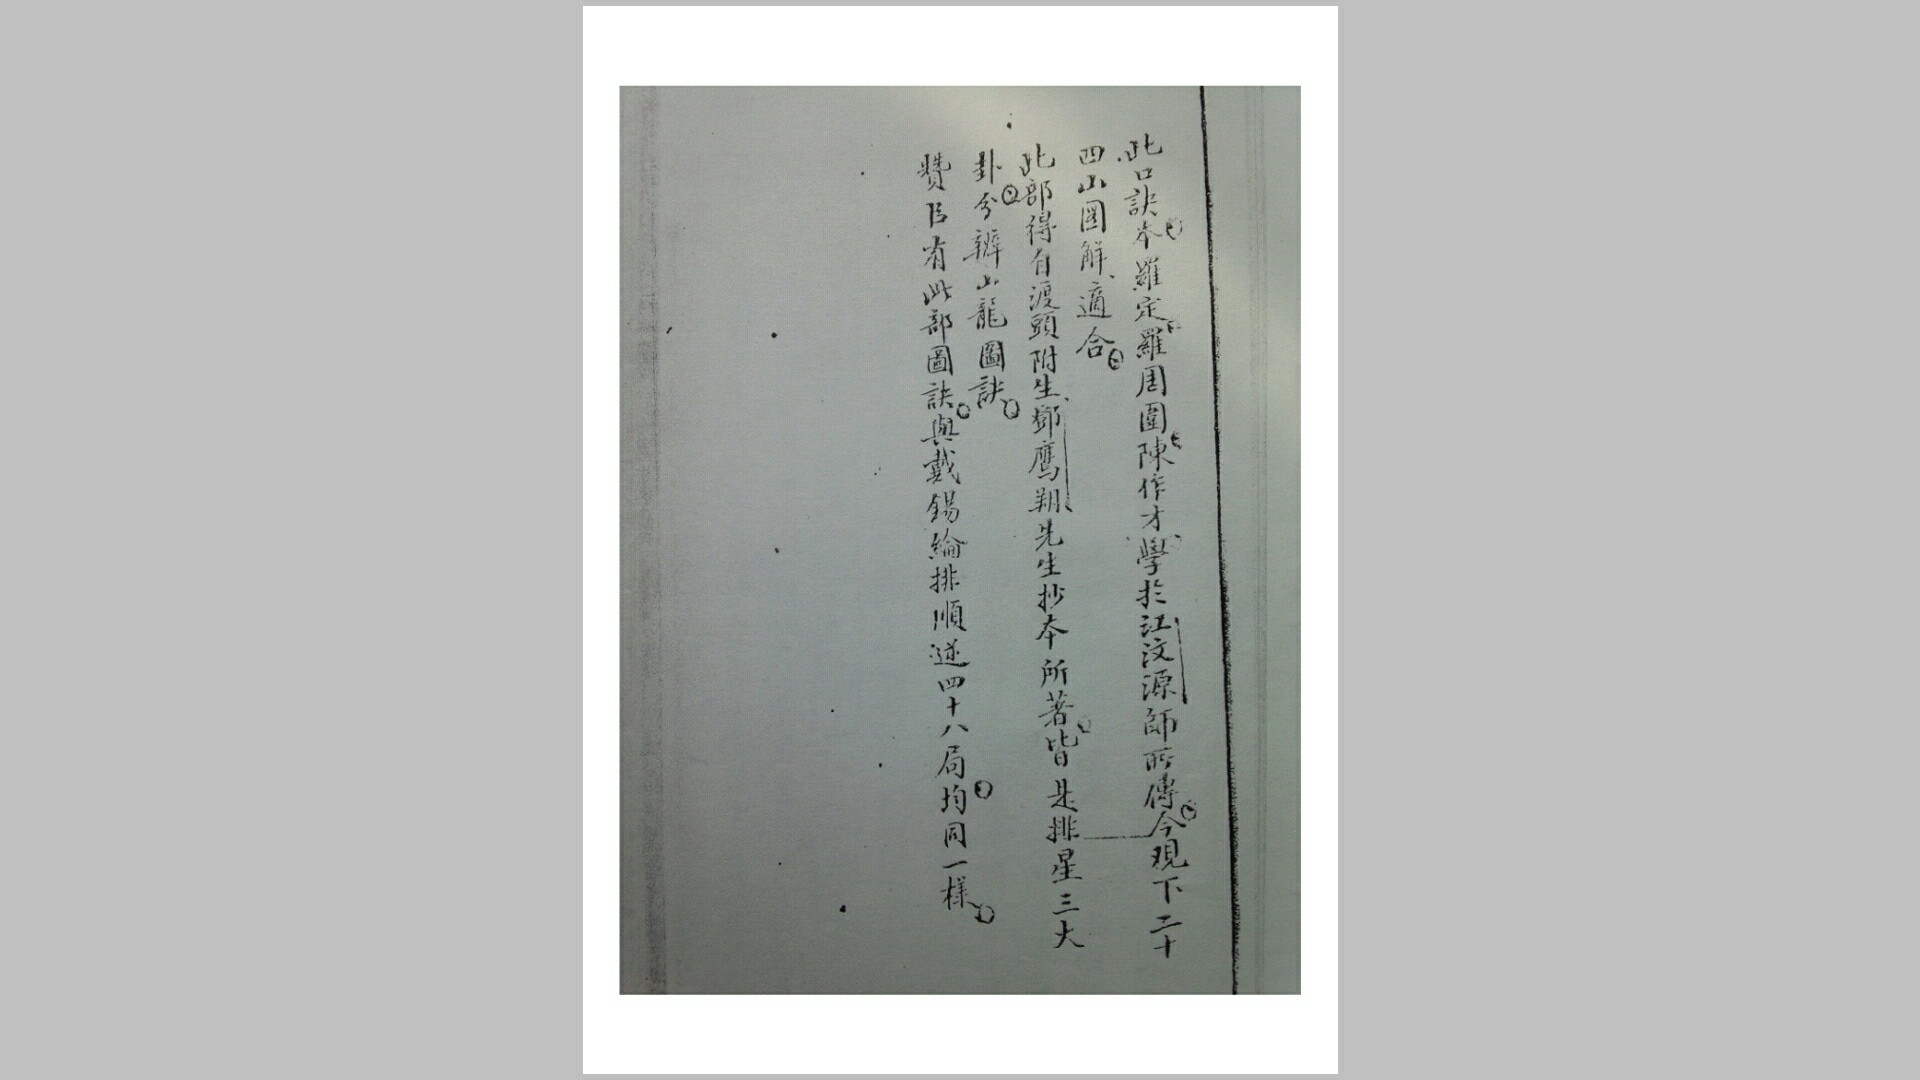 此口訣本羅定羅周圍陳作才學於江汶源師所傳今观下二十
四山圖解適合
此部得自渡頭附生鄧鹰翔先生抄本所著皆是排星三大
卦分辨山龍圖訣
賛臣有此部圖訣與戴錫綸排順逆四十八局均同一樣